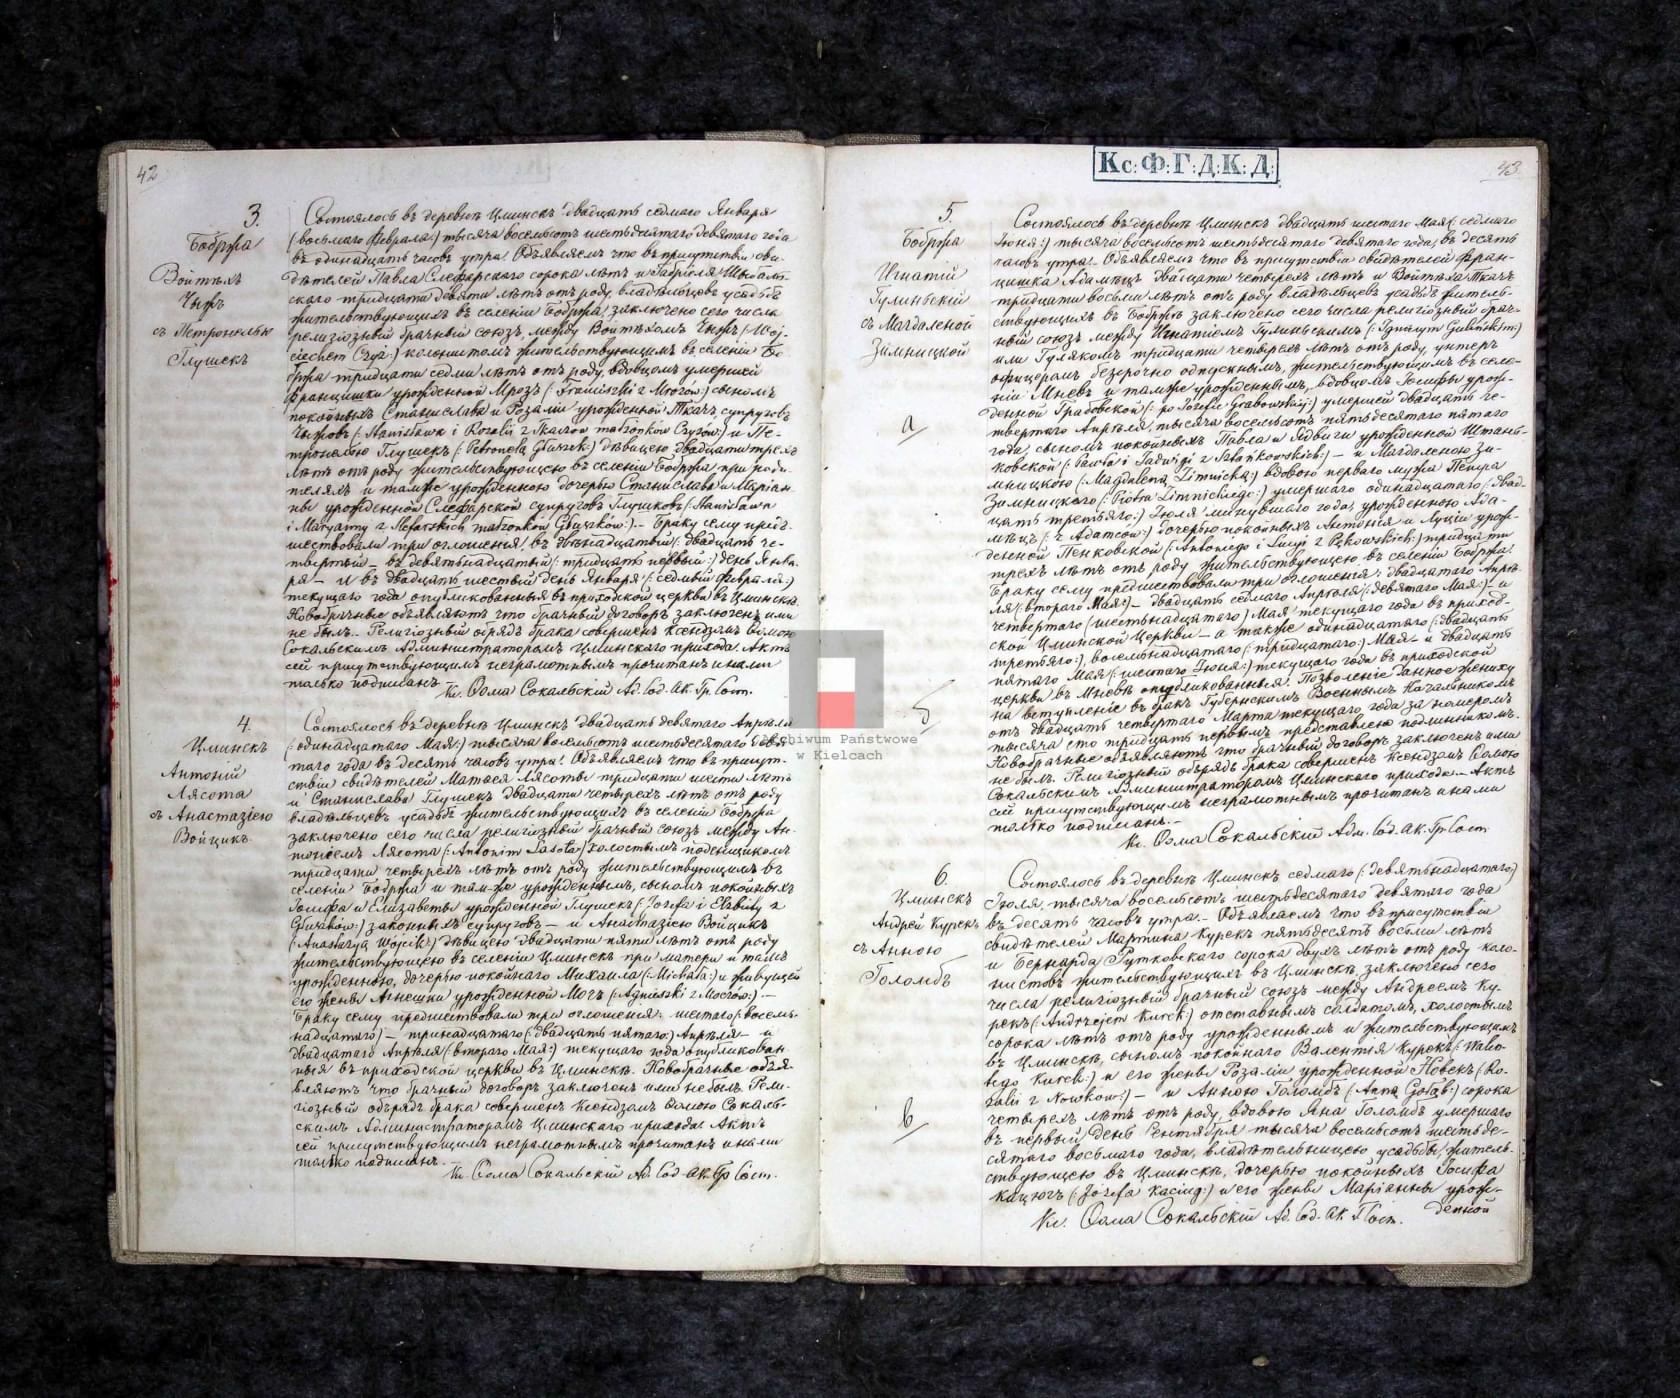 42
3.
Бобржа
Войтѣхъ
Чыжъ
съ Петронелью
Глушекъ
Состоялось въ деревнѣ Цминскъ двадцать седмаго Января
(: восьмаго Февраля:) тысяча восемьсотъ шестьдесятаго девятаго года
въ одинадцать часовъ утра. Объявляемъ что въ присутствіи сви-
дѣтелей Павла Слефарскаго сорока лѣтъ и Габріеля
скаго тридцати девяти лѣтъ отъ роду, владѣльцевъ усадьбъ
жительствующихъ въ селеніи Бобржа, заключено сего числа
религіозный брачный союзъ, между Войтѣхомъ Чыжъ (: Woj-
ciechem Czyż:) колонистомъ жительствующимъ въ селеніи Бо-
бржа тридцати седми лѣтъ отъ роду, вдовцомъ умершей
Францишки урожденной Мрозъ (: Franciszki z Mrozów:) сыномъ
покойныхъ Станислава и Розаліи урожденной Ткачъ супруговъ
Чыжовъ (: Stanisława i Rozalii z Tkaczów małżonków Czyżów:) и Пе-
тронелью Глушекъ (: Petronela Głuszek:) дѣвицею двадцати трехъ
лѣтъ отъ роду жительствующею въ селеніи Бобржа при роди-
теляхъ и тамже урожденною дочерью Станислава и Маріан-
ны урожденной Слефарской супруговъ Глушковъ (: Stanisława
i Maryanny z Slefarskich małżonków Głuszków:). Браку сему пред-
шествовали три оглашенія, въ двѣнадцатый (: двадцать че-
твертый:) въ девятьнадцатый (: тридцать первый:) день Янва-
ря — и въ двадцать шестый день Января (: седмый Февраля:)
текущаго года опубликованныя въ приходской церкви въ Цминскѣ.
Новобрачные объявляютъ что брачный договоръ заключенъ ими
не былъ. Религіозный обрядъ брака совершенъ Ксендзомъ Ѳомою
Сокальскимъ Администраторомъ Цминскаго прихода. Актъ
сей присутствующимъ неграмотнымъ прочитанъ и нами
только подписанъ
Кс. Ѳома Сокальскій Ад. Сод. Ак. Гр. Сост.
4.
Цминскъ
Антоній
Лясота
съ Анастазіею
Войцикъ
Состоялось въ деревнѣ Цминскъ двадцать девятаго Апрѣля
(: одинадцатаго Мая:) тысяча восемьсотъ шестьдесятаго девя-
таго года въ десять часовъ утра. Объявляемъ что въ присут-
ствіи свидѣтелей Матвея Лясоты тридцати шести лѣтъ
и Станислава Глушекъ двадцати четырехъ лѣтъ отъ роду
владѣльцевъ усадьбъ жительствующихъ въ селеніи Бобржа
заключено сего числа религіозный брачный союзъ между Ан-
тоніемъ Лясота (: Antonim Lasota:) холостымъ поденщикомъ
тридцати четырехъ лѣтъ отъ роду жительствующимъ въ
селеніи Бобржа и тамже урожденнымъ, сыномъ покойныхъ
Іосифа и Елизаветы урожденной Глушекъ (: Józefa i Elżbiety z
законныхъ супруговъ — и Анастазіею Войцикъ
(: Anastazyą Wójcik:) дѣвицею двадцати пяти лѣтъ отъ роду
жительствующею въ селеніи Цминскъ при матери и тамъ
урожденною, дочерью покойнаго Михаила (: Michała:) и живущей
его жены Агнешки урожденной Мочъ (: Agnieszki z Moczów:) —
Браку сему предшествовали три оглашенія: шестаго (: восемь-
надцатаго:) — тринадцатаго (: двадцать пятаго:) Апрѣля — и
двадцатаго Апрѣля (: втораго Мая:) текущаго года опубликован-
ныя въ приходской церкви въ Цминскѣ. Новобрачные объя-
вляютъ что брачный договоръ заключенъ ими не былъ. Рели-
гіозный обрядъ брака совершенъ Ксендзомъ Ѳомою Сокаль-
скимъ Администраторомъ Цминскаго прихода. Актъ
сей присутствующимъ неграмотнымъ прочитанъ и нами
только подписанъ.
Кс. Ѳома Сокальскій Ад. Сод. Ак. Гр. Сост.
Кс: Ф: Г: Д: К: Д:
43
5.
Бобржа
Игнатій
Гулиньскій
съ Магдаленой
Зимницкой
а
Состоялось въ деревнѣ Цминскъ двадцать шестаго Мая (: седмаго
Іюня:) тысяча восемьсотъ шестьдесятаго девятаго года, въ десять
часовъ утра. Объявляемъ что въ присутствіи свидѣтелей Фран-
цишка Адамецъ двадцати четырехъ лѣтъ и Войтѣха Ткачъ
тридцати восьми лѣтъ отъ роду владѣльцевъ усадьбъ житель-
ствующихъ въ Бобржѣ заключено сего числа религіозный брач-
ный союзъ между Игнатіемъ Гулиньскимъ (: Ignacym Gulińskim:)
или Гулякомъ тридцати четырехъ лѣтъ отъ роду, унтеръ
офицеромъ безсрочно отпускнымъ, жительствующимъ въ селе-
ніи Мневъ и тамже урожденнымъ, вдовцомъ Іосифы урож-
денной Грабовской (: po Józefie Grabowskiej:) умершей двадцать че-
твертаго Апрѣля, тысяча восемьсотъ пятьдесятаго пятаго
года, сыномъ покойныхъ Павла и Ядвиги урожденной Штань-
ковской (: Pawła i Jadwigi z Sztańkowskich:) — и Магдаленою Зи-
мницкою (: Magdaleną Zimnicką:) вдовою перваго мужа Петра
Зимницкаго (: Piotra Zimnickiego:) умершаго одинадцатаго (: двад-
цать третьяго:) Іюля минувшаго года, урожденною Ада-
мецъ (: z Adamców:) дочерью покойныхъ Антонія и Луціи урож-
денной Пенковской (: Antoniego i Lucyi z Pękowskich:) тридцати
трехъ лѣтъ отъ роду жительствующею въ селеніи Бобржа.
Браку сему предшествовали три оглашенія: двадцатаго Апрѣ-
ля (: втораго Мая:) — двадцать седмаго Апрѣля (: девятаго Мая:) — и
четвертаго (: шестьнадцатаго:) Мая текущаго года въ приход-
ской Цминской Церкви — а также одинадцатаго (: двадцать
третьяго:), восемьнадцатаго (: тридцатаго:) Мая — и двадцать
пятаго Мая (: шестаго Іюня:) текущаго года въ приходской
церкви въ Мневѣ опубликованныя. Позволеніе данное жениху
на вступленіе въ бракъ Губернскимъ Военнымъ Начальникомъ
отъ двадцать четвертаго Марта текущаго года за номеромъ
тысяча сто тридцать первымъ представлено подлинникомъ.
Новобрачные объявляютъ что брачный договоръ заключенъ ими
не былъ. Религіозный обрядъ брака совершенъ Ксендзомъ Ѳомою
Сокальскимъ Администраторомъ Цминскаго прихода. — Актъ
сей присутствующимъ неграмотнымъ прочитанъ и нами
только подписанъ. —
Кс. Ѳома Сокальскій Адм. Сод. Ак. Гр. Сост.
6.
Цминскъ
Андрей Курекъ
съ Анною
Голомбъ
в
Состоялось въ деревнѣ Цминскъ седмаго (: девятьнадцатаго:)
Іюля, тысяча восемьсотъ шестьдесятаго девятаго года
въ десять часовъ утра. — Объявляемъ что въ присутствіи
свидѣтелей Мартина Курекъ пятьдесятъ восьми лѣтъ
и Бернарда Рутковскаго сорока двухъ лѣтъ отъ роду коло-
нистовъ жительствующихъ въ Цминскѣ, заключено сего
числа религіозный брачный союзъ между Андреемъ Ку-
рекъ (: Andrzejem Kurek:) отставнымъ солдатомъ, холостымъ
сорока лѣтъ отъ роду урожденнымъ и жительствующимъ
въ Цминскѣ, сыномъ покойнаго Валентія Курекъ (: Walen-
tego Kurek:) и его жены Розаліи урожденной Новекъ (: Ro-
zalii z Nowków:) — и Анною Голомбъ (: Anną Gołąb:) сорока
четырехъ лѣтъ отъ роду, вдовою Яна Голомбъ умершаго
въ первый день Сентября тысяча восемьсотъ шестьде-
сятаго восьмаго года, владѣтельницею усадьбы, житель-
ствующею въ Цминскѣ, дочерью покойныхъ Іосифа
Кацюгъ (: Józefa Kaciug:) и его жены Маріанны урож-
денной
Кс. Ѳома Сокальскій Ад. Сод. Ак. Г Сост.
Archiwum Państwowe
w Kielcach